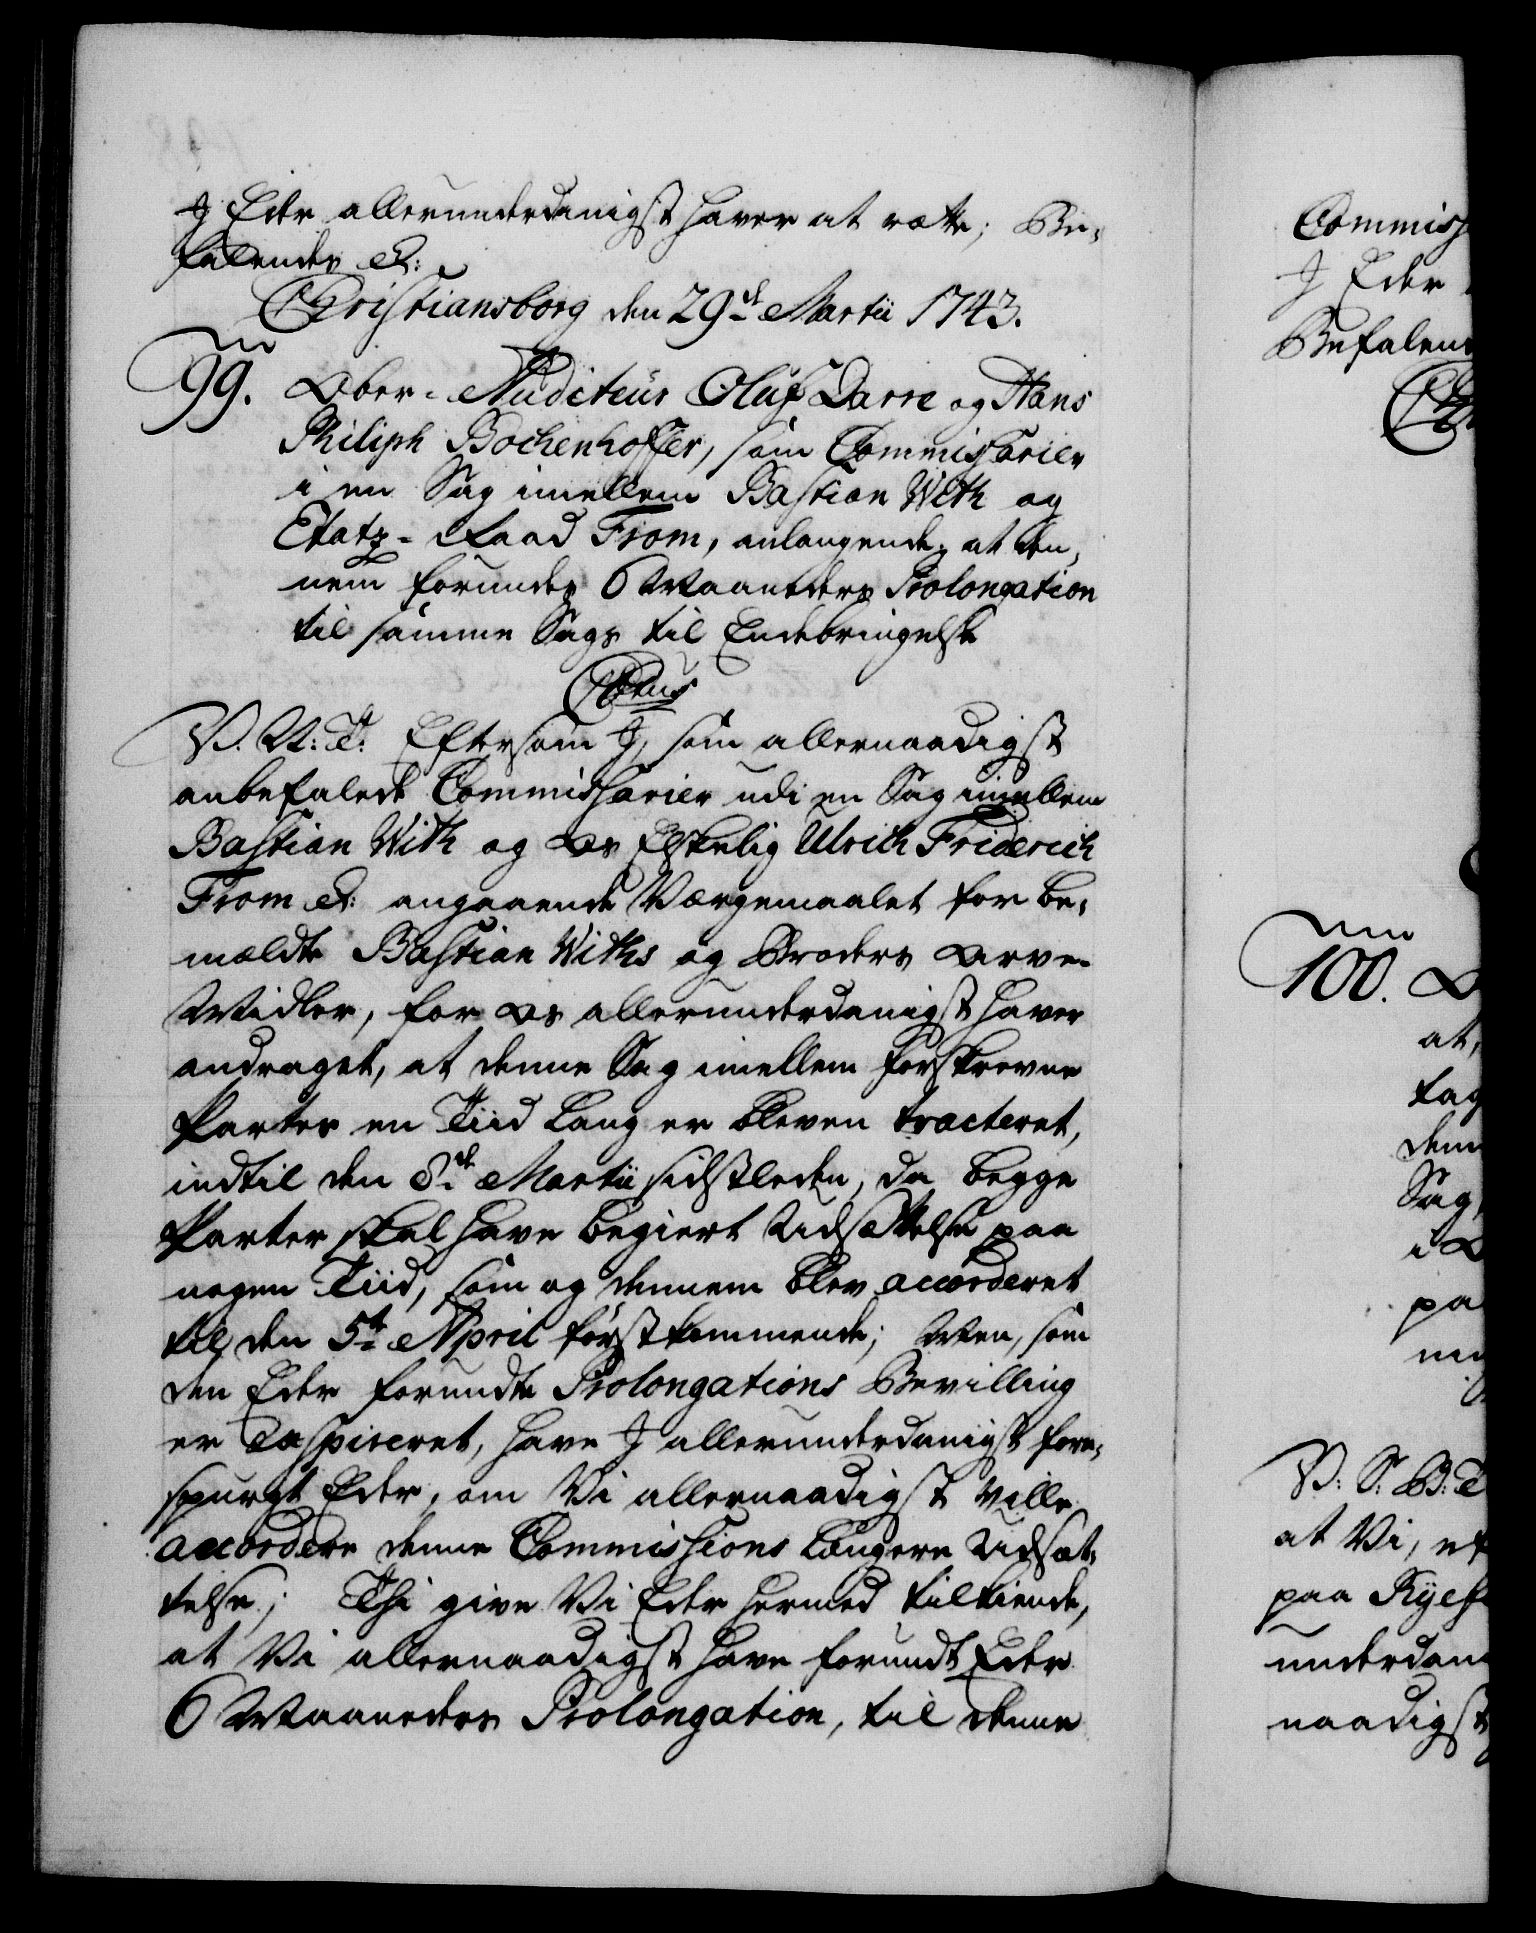 J Eder allerunderdanigst haver at rætte; Be-
falendes &:
Christiansborg den 29de Martii 1743.
99. Ober-Auditeur Oluf Darre og Hans
Philiph Bochenhoffer, som Commissarier
i en Sag imellem Bastian With og
Etatz-Raad From, anlangende, at den-
nem forundes 6 Maaneders Prolongation
til samme Sags til Endebringelse
C 6tus
V. A: T: Eftersom J, som allernaadigst
anbefalede Commissarier udi en Sag imellem
Bastian With og Os Elskelig Ulrich Friderich
From &: angaaende Værgemaalet for be-
meldte Bastian Withs og Broders Arve-
Midler, for Os allerunderdanigst haver
andraget, at denne Sag imellem forskrevne
Parter en Tiid lang er bleven tracteret,
indtil den 8de Martii sidstleden, da begge
Parter skal have begiert Udsættelse paa
nogen Tiid, som og dennem blev accorderet
til den 5te April førstkommende; Men, som
den Eder forundte Prolongations Bevilling
er exspireret, have J allerunderdanigst fore-
spurgt Eder, om Vi allernaadigst ville
accordere denne Commissions længere Udsæt-
telse; Thi give Vi Eder hermed tilkiende,
at Vi allernaadigst have forundt Eder
6 Maaneders Prolongation, til denne
Commiss
J Eder
Befalend
100. O
at,
tag
dem
Sag,
i O
pa
V: S: B: T
at Vi, ef
paa Ryef
underdan
naadigst